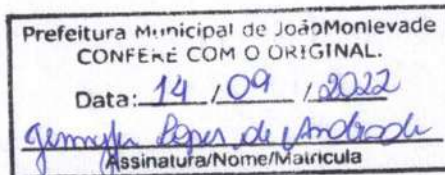 Prefeitura Municipal de JoãoMonlevade
CONFERE COM O ORIGINAL.
Data: 14 / 09 / 2022
Lopes de Andrade
Assinatura/Nome/Matricula